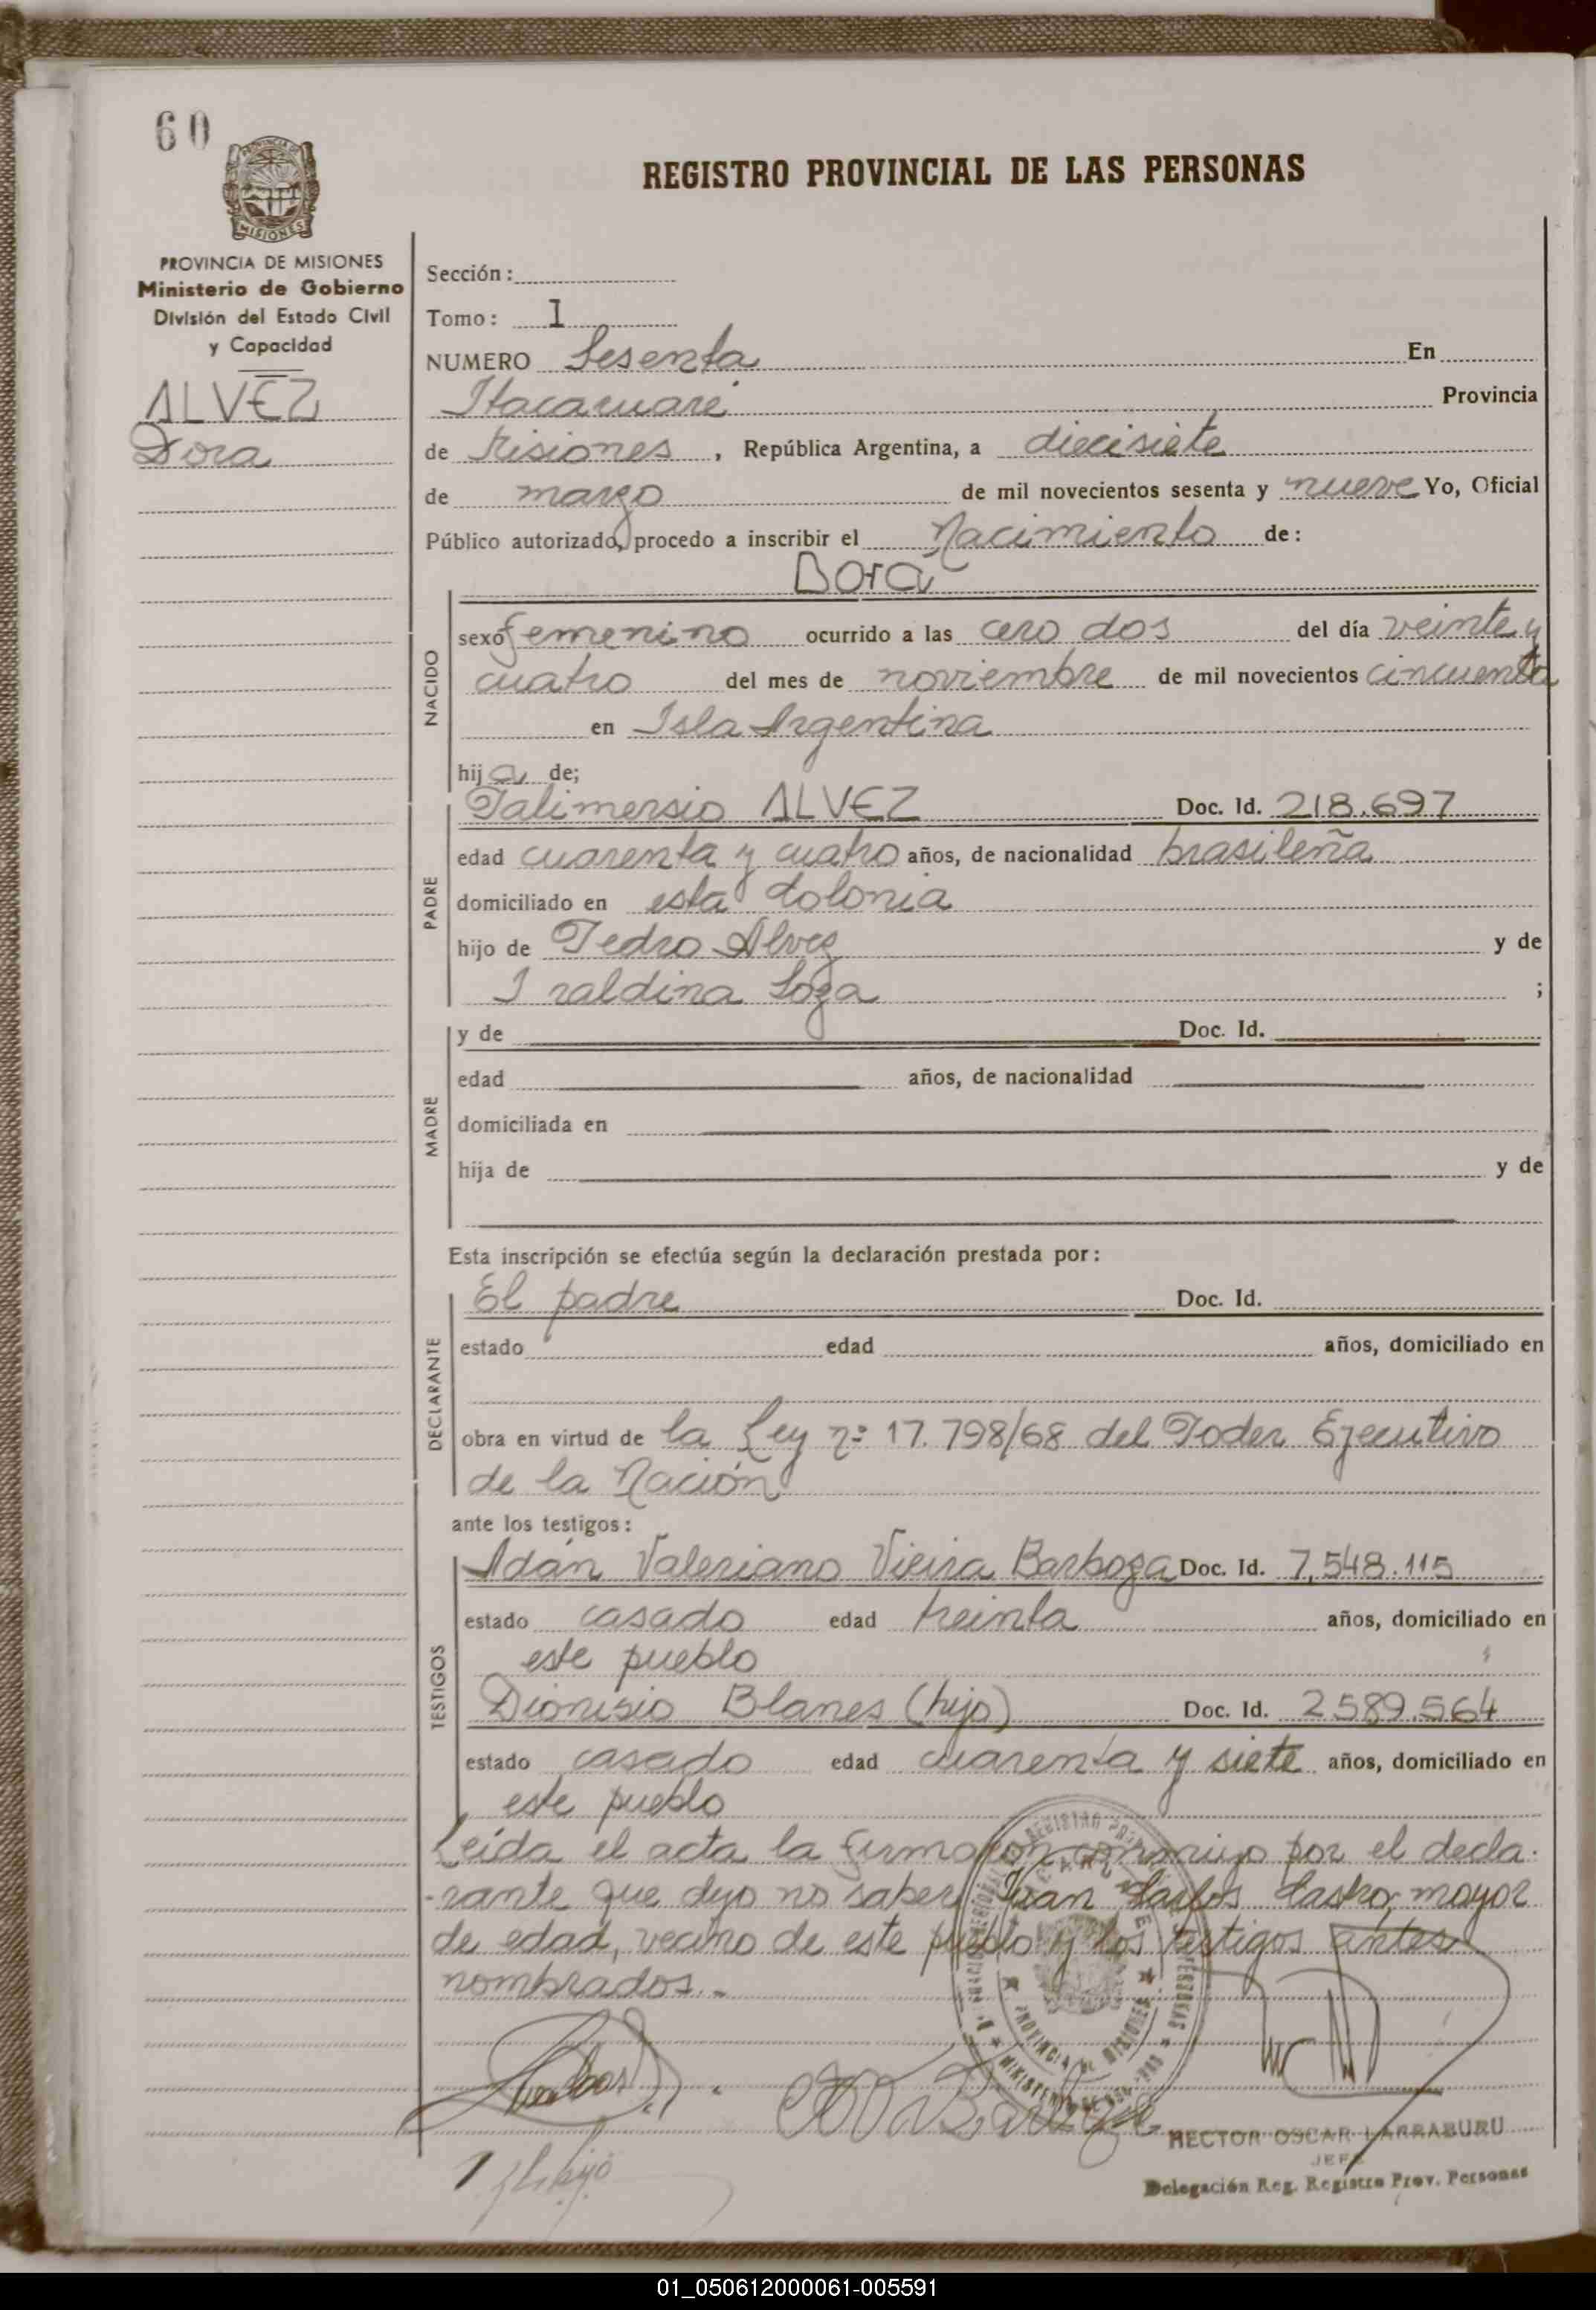 60
MISIONES
REGISTRO PROVINCIAL DE LAS PERSONAS
PROVINCIA DE MISIONES
Ministerio de Gobierno
División del Estado Civil
y Capacidad
ALVEZ
Dora
Sección:
Tomo: I
NUMERO Sesenta En
Itacaruaré Provincia
de Misiones, República Argentina, a diecisiete
de marzo de mil novecientos sesenta y nueve Yo, Oficial
Público autorizado, procedo a inscribir el Nacimiento de:
Dora
NACIDO
sexo femenino ocurrido a las cero dos del día veinte y
cuatro del mes de noviembre de mil novecientos cincuenta
en Isla Argentina
hija de;
PADRE
Palimersio ALVEZ Doc. Id. 218.697
edad cuarenta y cuatro años, de nacionalidad brasileña
domiciliado en esta Colonia
hijo de Pedro Alvez y de
Iraldina Soza ;
MADRE
y de Doc. Id.
edad años, de nacionalidad
domiciliada en
hija de y de
Esta inscripción se efectúa según la declaración prestada por:
DECLARANTE
El padre Doc. Id.
estado edad años, domiciliado en
obra en virtud de la Ley nº 17.798/68 del Poder Ejecutivo
de la Nación
ante los testigos:
TESTIGOS
Adán Valeriano Vieira Barboza Doc. Id. 7.548.115
estado casado edad treinta años, domiciliado en
este pueblo
Dionisio Blanes (hijo) Doc. Id. 2589.564
estado casado edad cuarenta y siete años, domiciliado en
este pueblo
Leída el acta la firmaron conmigo por el decla-
-rante que dijo no saber Juan Carlos Castro, mayor
de edad, vecino de este pueblo y los testigos antes
nombrados.-
HECTOR OSCAR LARRABURU
JEFE
Delegación Reg. Registro Prov. Personas
01_050612000061-005591